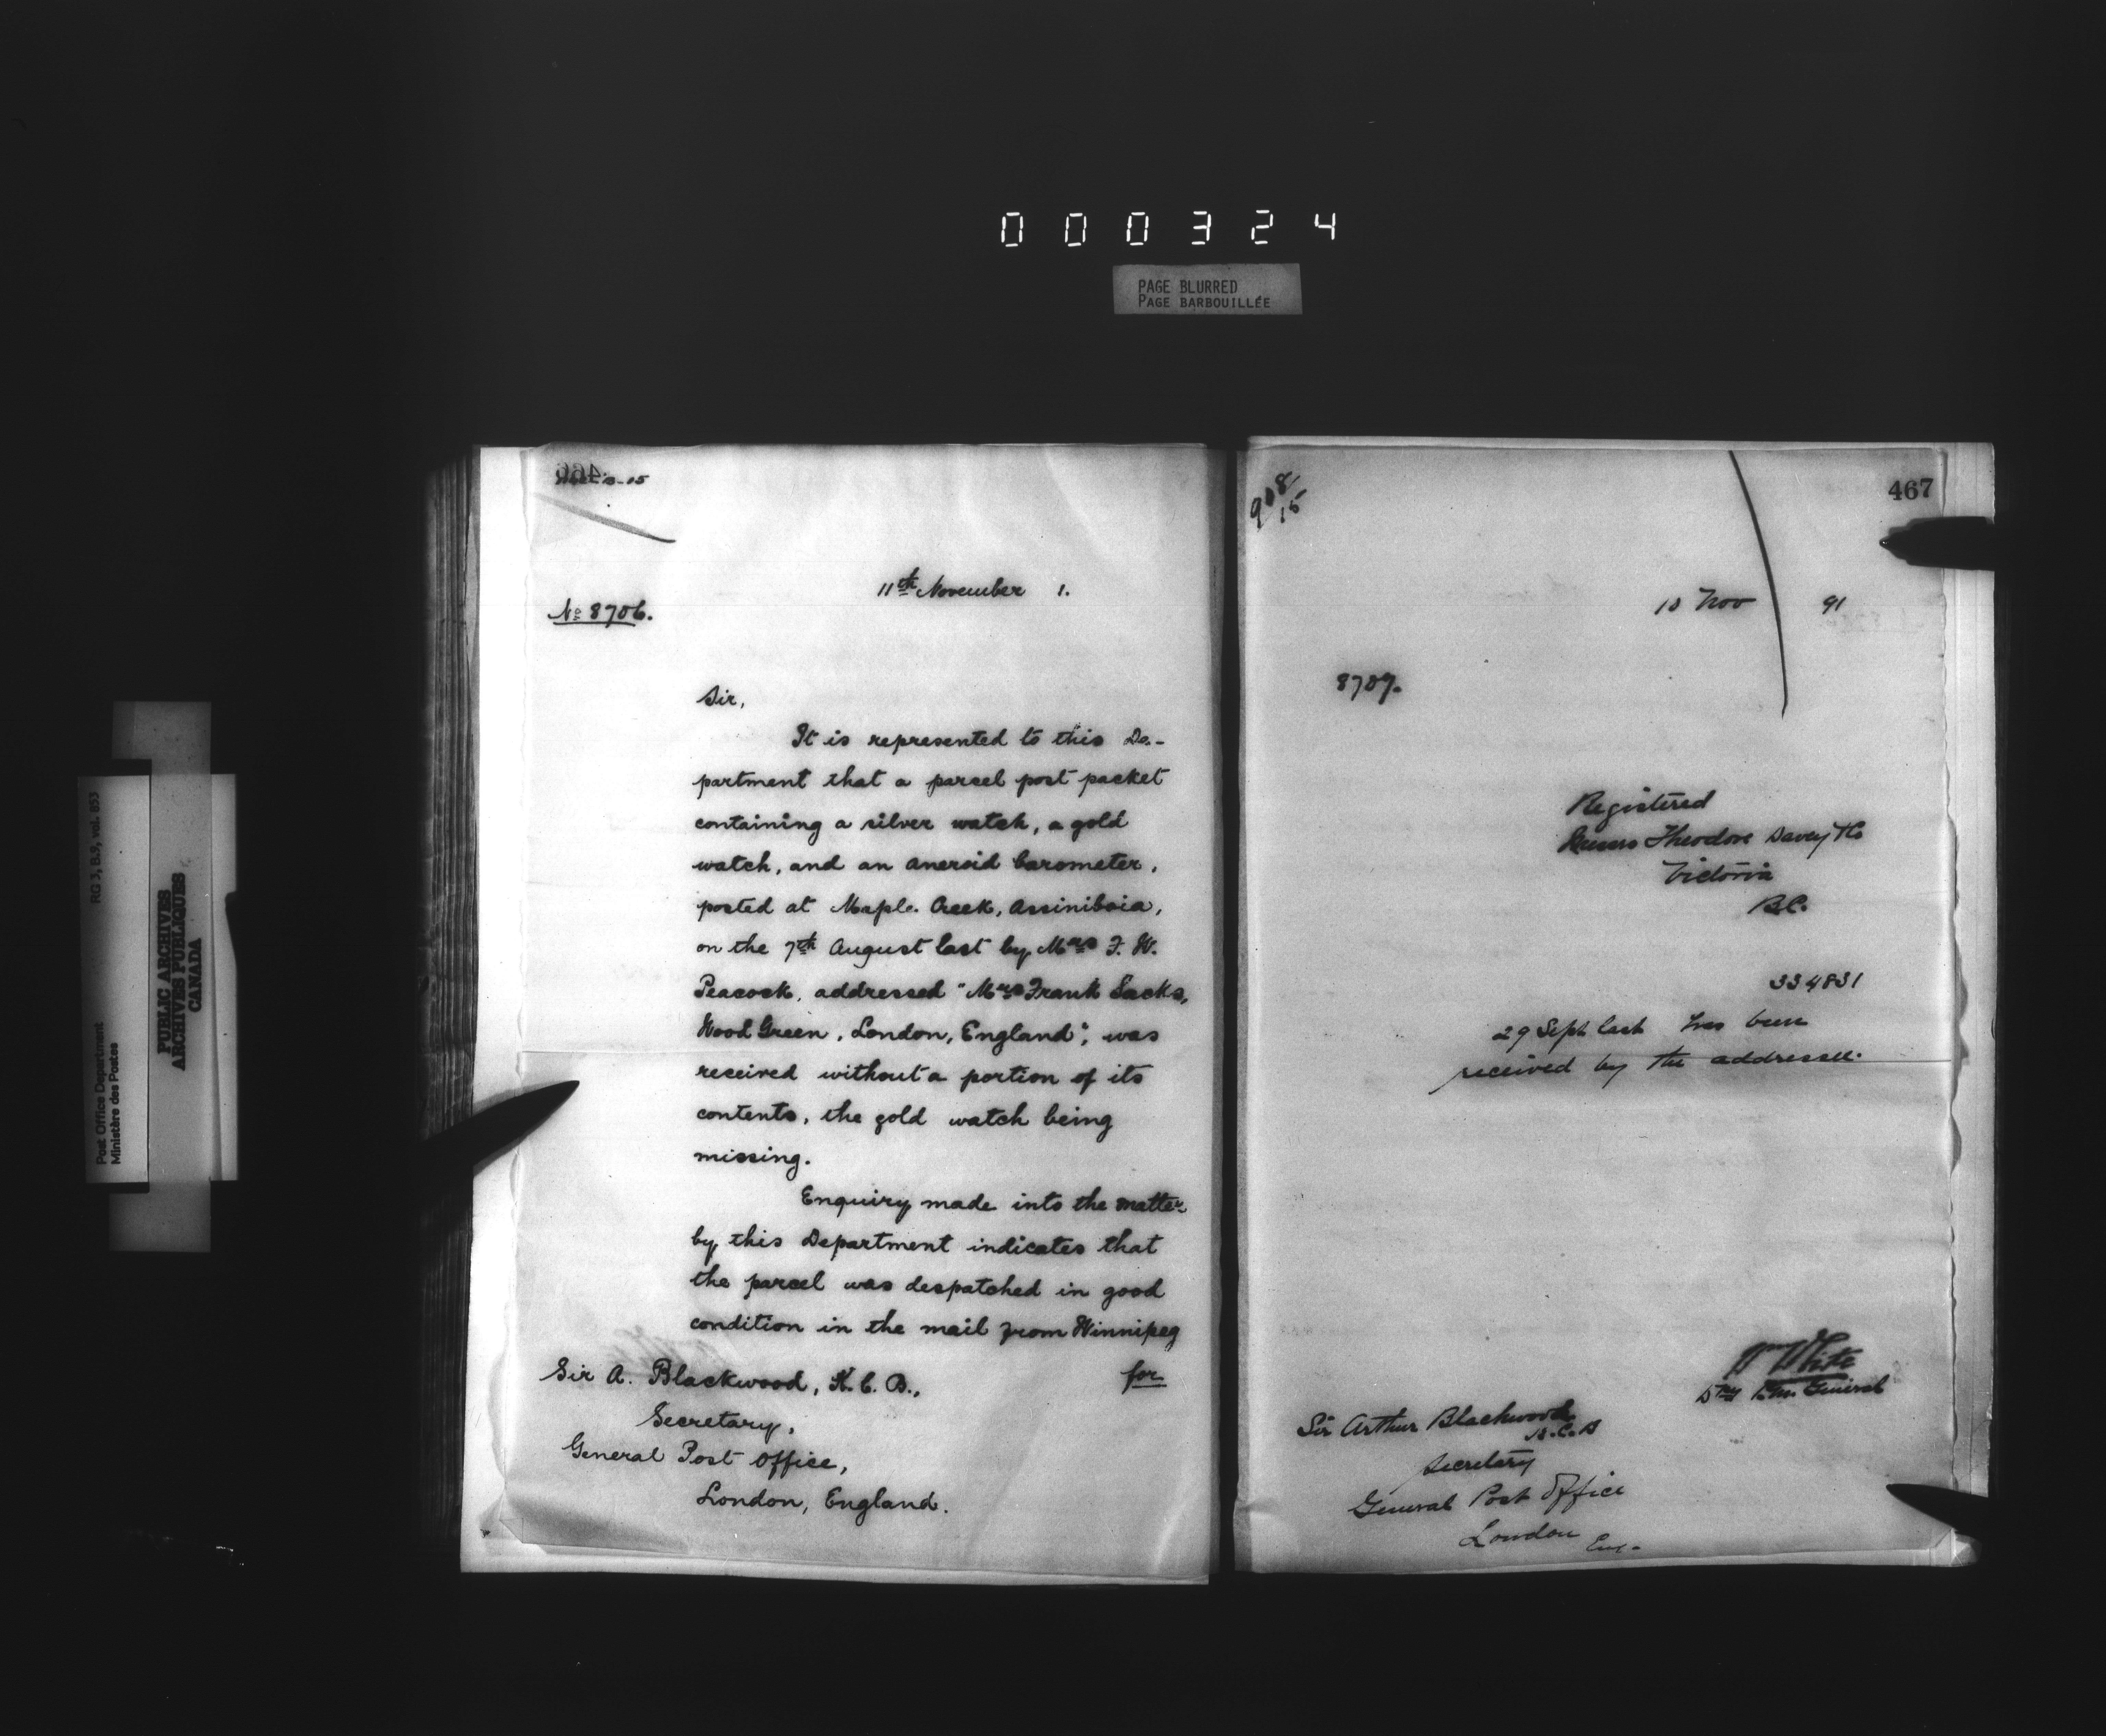 000324
PAGE BLURRED
PAGE BARBOUILLÉE
RG 3, B.9, vol. 853
Post Office Department
Ministère des Postes
PUBLIC ARCHIVES
ARCHIVES PUBLIQUES
CANADA
466
11th November 1.
No 8706.
Sir,
It is represented to this De-
partment that a parcel post packet
containing a silver watch, a gold
watch, and an aneroid barometer,
posted at Maple Creek, Assiniboia,
on the 7th August last by Mrs F. W.
Peacock, addressed "Mrs Frank Sacks,
Wood Green, London, England", was
received without a portion of its
contents, the gold watch being
missing.
Enquiry made into the matter
by this Department indicates that
the parcel was despatched in good
condition in the mail from Winnipeg
for
Sir A. Blackwood, K.C.B.,
Secretary,
General Post Office,
London, England.
467
908/15
10 Nov 91
8707.
Registered
Theodore Davey & Co
Victoria
B.C.
334831
29 Sept last has been
received by the addressee.
Wm White
Dty P.M. General
Sir Arthur Blackwood
K.C.B
Secretary
General Post Office
London Eng-